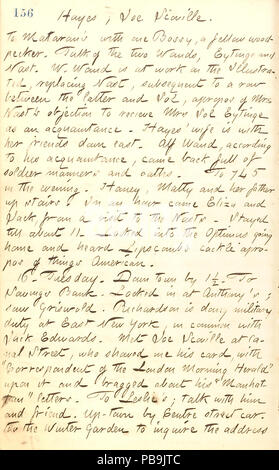 156
Hayes; Joe Scoville.
to Mataran's with one Bossey, a fellow wood-
pecker. Talk of the two Wauds, Eytinge and
Nast. W. Waud is at work on the Illustra-
ted, replacing Nast, subsequent to a row
between the latter and Sol, apropos of Mrs
Nast's objection to receive Mrs Sol Eytinge
as an acquaintance. Hayes' wife is with
her friends down east. Alf Waud, according
to his acquaintance, came back full of
soldier manners and oaths. To 745
in the evening. Haney, Matty and her father
up stairs. In an hour came Eliza and
Jack from a visit to the Nasts. Stayed
till about 11. Looked into the Optimus going
home and heard Lipscomb's cackle apro-
pos of things American.
16. Tuesday. Down town by 1½. To
Savings Bank. Looked in at Anthony's,
saw Griswold. Richardson is doing military
duty at East New York, in common with
Jack Edwards. Met Joe Scoville at Ca-
nal Street, who showed me his card, with
"Correspondent of the London Morning Herald"
upon it and bragged about his "Manhat-
tan" letters. To Leslie's; talk with him
and friend. Up-town by Centre street car.
To the Winter Garden to inquire the address
alamy
Image ID: PB9JTC
www.alamy.com